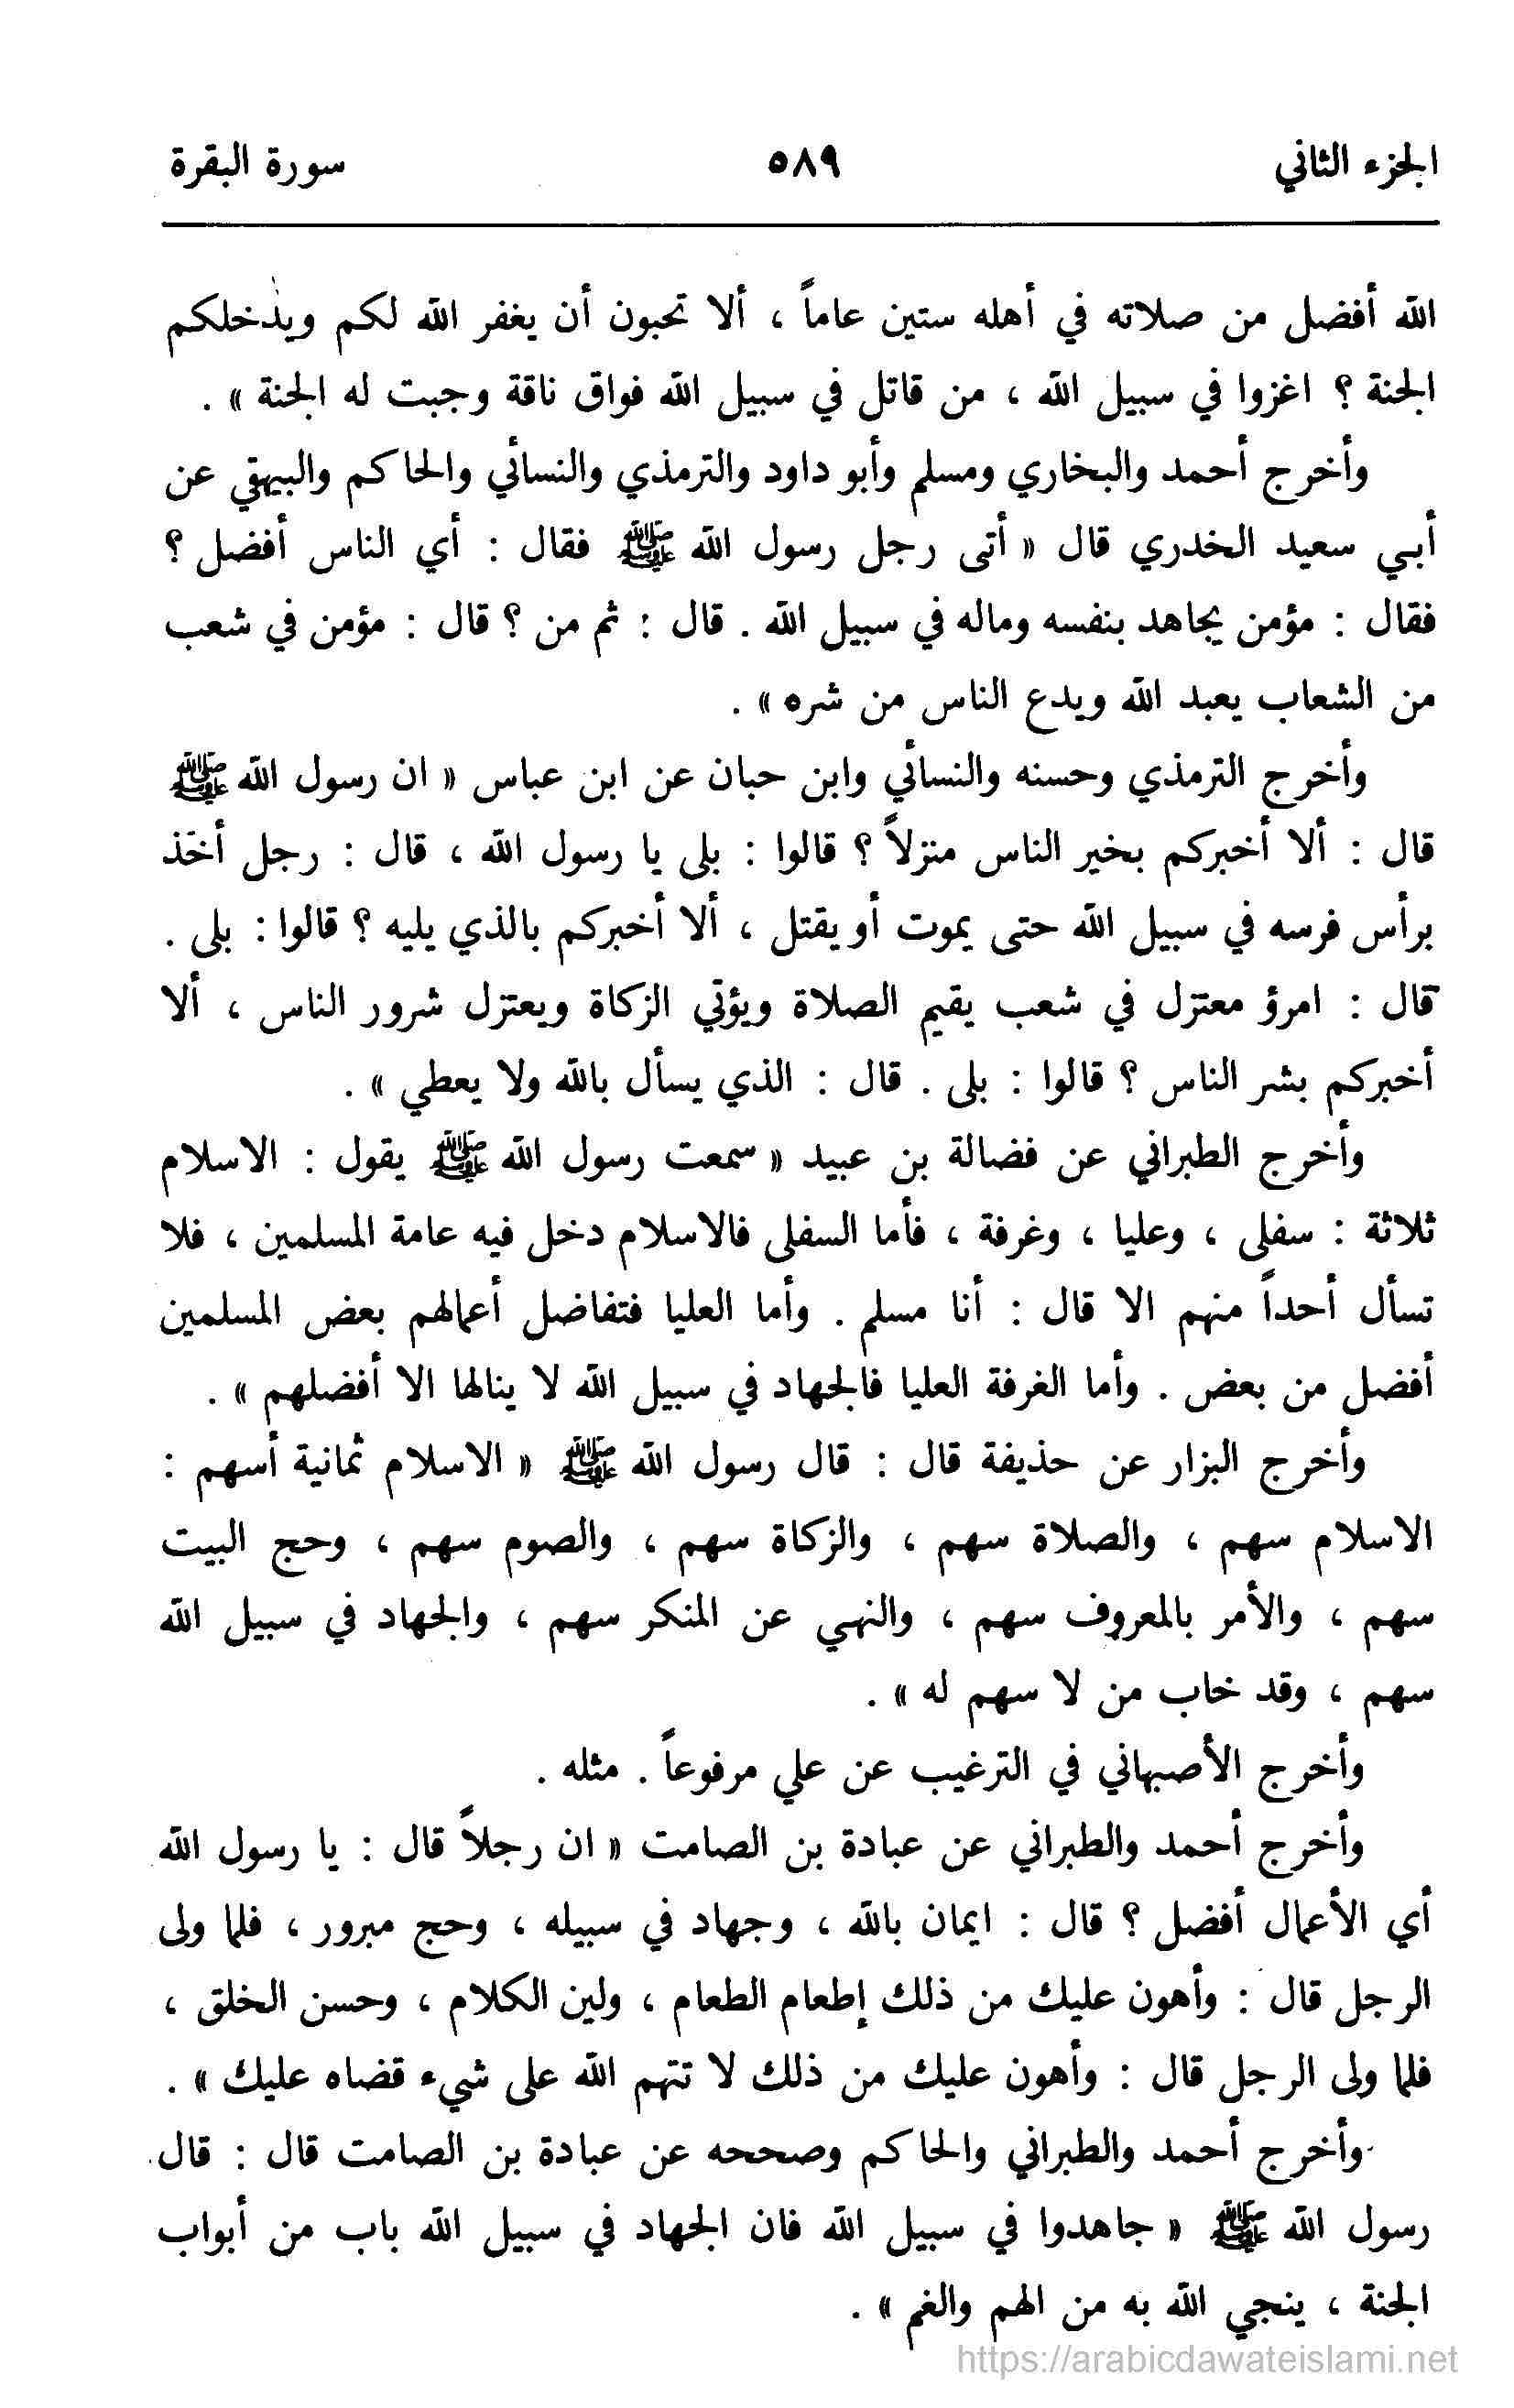 الجزء الثاني ٥٨٩ سورة البقرة
الله أفضل من صلاته في أهله ستين عاماً ، ألا تحبون أن يغفر الله لكم ويدخلكم
الجنة ؟ اغزوا في سبيل الله ، من قاتل في سبيل الله فواق ناقة وجبت له الجنة » .
وأخرج أحمد والبخاري ومسلم وأبو داود والترمذي والنسائي والحاكم والبيهقي عن
أبي سعيد الخدري قال « أتى رجل رسول الله ﷺ فقال : أي الناس أفضل ؟
فقال : مؤمن يجاهد بنفسه وماله في سبيل الله . قال : ثم من ؟ قال : مؤمن في شعب
من الشعاب يعبد الله ويدع الناس من شره » .
وأخرج الترمذي وحسنه والنسائي وابن حبان عن ابن عباس « ان رسول الله ﷺ
قال : ألا أخبركم بخير الناس منزلاً ؟ قالوا : بلى يا رسول الله ، قال : رجل أخذ
برأس فرسه في سبيل الله حتى يموت أو يقتل ، ألا أخبركم بالذي يليه ؟ قالوا : بلى .
قال : امرؤ معتزل في شعب يقيم الصلاة ويؤتي الزكاة ويعتزل شرور الناس ، ألا
أخبركم بشر الناس ؟ قالوا : بلى . قال : الذي يسأل بالله ولا يعطي » .
وأخرج الطبراني عن فضالة بن عبيد « سمعت رسول الله ﷺ يقول : الاسلام
ثلاثة : سفلى ، وعليا ، وغرفة ، فأما السفلى فالاسلام دخل فيه عامة المسلمين ، فلا
تسأل أحداً منهم الا قال : أنا مسلم . وأما العليا فتفاضل أعمالهم بعض المسلمين
أفضل من بعض . وأما الغرفة العليا فالجهاد في سبيل الله لا ينالها الا أفضلهم » .
وأخرج البزار عن حذيفة قال : قال رسول الله ﷺ « الاسلام ثمانية أسهم :
الاسلام سهم ، والصلاة سهم ، والزكاة سهم ، والصوم سهم ، وحج البيت
سهم ، والأمر بالمعروف سهم ، والنهي عن المنكر سهم ، والجهاد في سبيل الله
سهم ، وقد خاب من لا سهم له » .
وأخرج الأصبهاني في الترغيب عن علي مرفوعاً . مثله .
وأخرج أحمد والطبراني عن عبادة بن الصامت « ان رجلاً قال : يا رسول الله
أي الأعمال أفضل ؟ قال : ايمان بالله ، وجهاد في سبيله ، وحج مبرور ، فلما ولى
الرجل قال : وأهون عليك من ذلك إطعام الطعام ، ولين الكلام ، وحسن الخلق ،
فلما ولى الرجل قال : وأهون عليك من ذلك لا تتهم الله على شيء قضاه عليك » .
وأخرج أحمد والطبراني والحاكم وصححه عن عبادة بن الصامت قال : قال
رسول الله ﷺ « جاهدوا في سبيل الله فان الجهاد في سبيل الله باب من أبواب
الجنة ، ينجي الله به من الهم والغم » .
https://arabicdawateislami.net